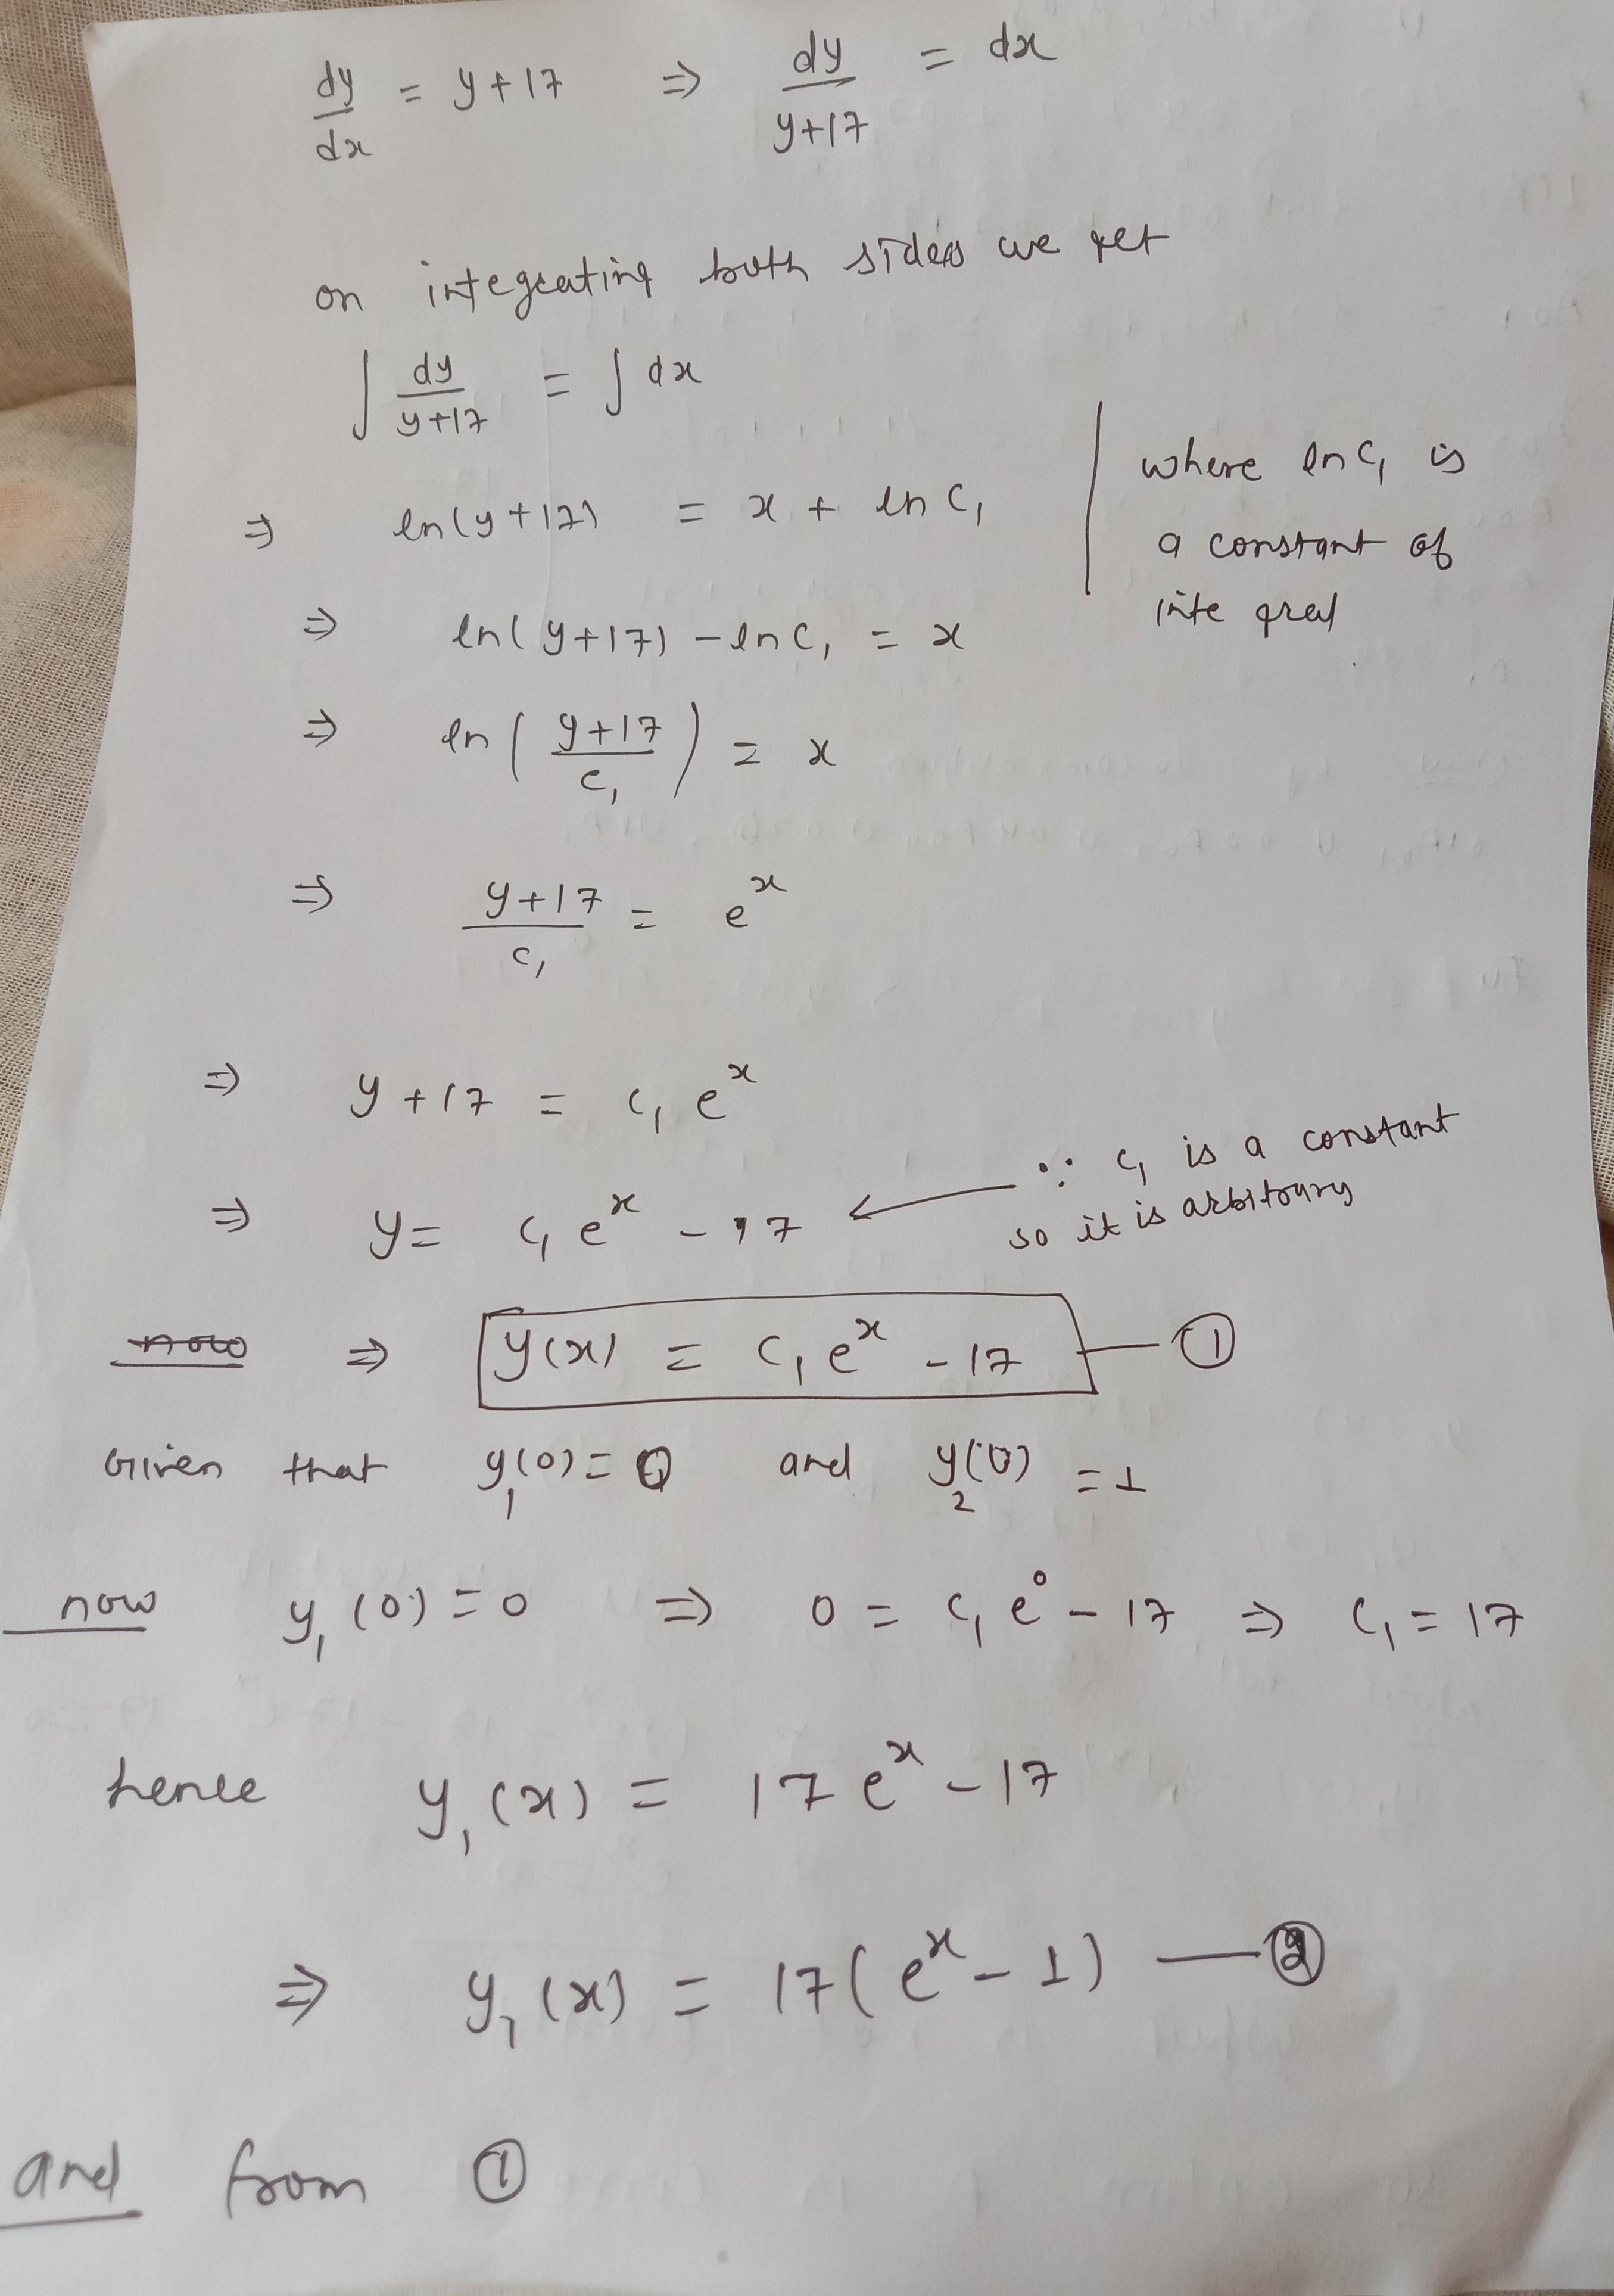 dy/dx = y+17 ⇒ dy/y+17 = dx
on integrating both sides we get
∫ dy/y+17 = ∫ dx
⇒ ln(y+17) = x + ln C₁
where ln C₁ is
a constant of
integral
⇒ ln(y+17) - ln C₁ = x
⇒ ln(y+17/C₁) = x
⇒ y+17/C₁ = eˣ
⇒ y+17 = C₁ eˣ
⇒ y = C₁ eˣ - 17
∵ C₁ is a constant
so it is arbitrary
now ⇒ y(x) = C₁ eˣ - 17 — ①
Given that y₁(0) = 0 and y₂(0) = 1
now y₁(0) = 0 ⇒ 0 = C₁ e⁰ - 17 ⇒ C₁ = 17
hence y₁(x) = 17 eˣ - 17
⇒ y₁(x) = 17(eˣ - 1) — ②
and from ①